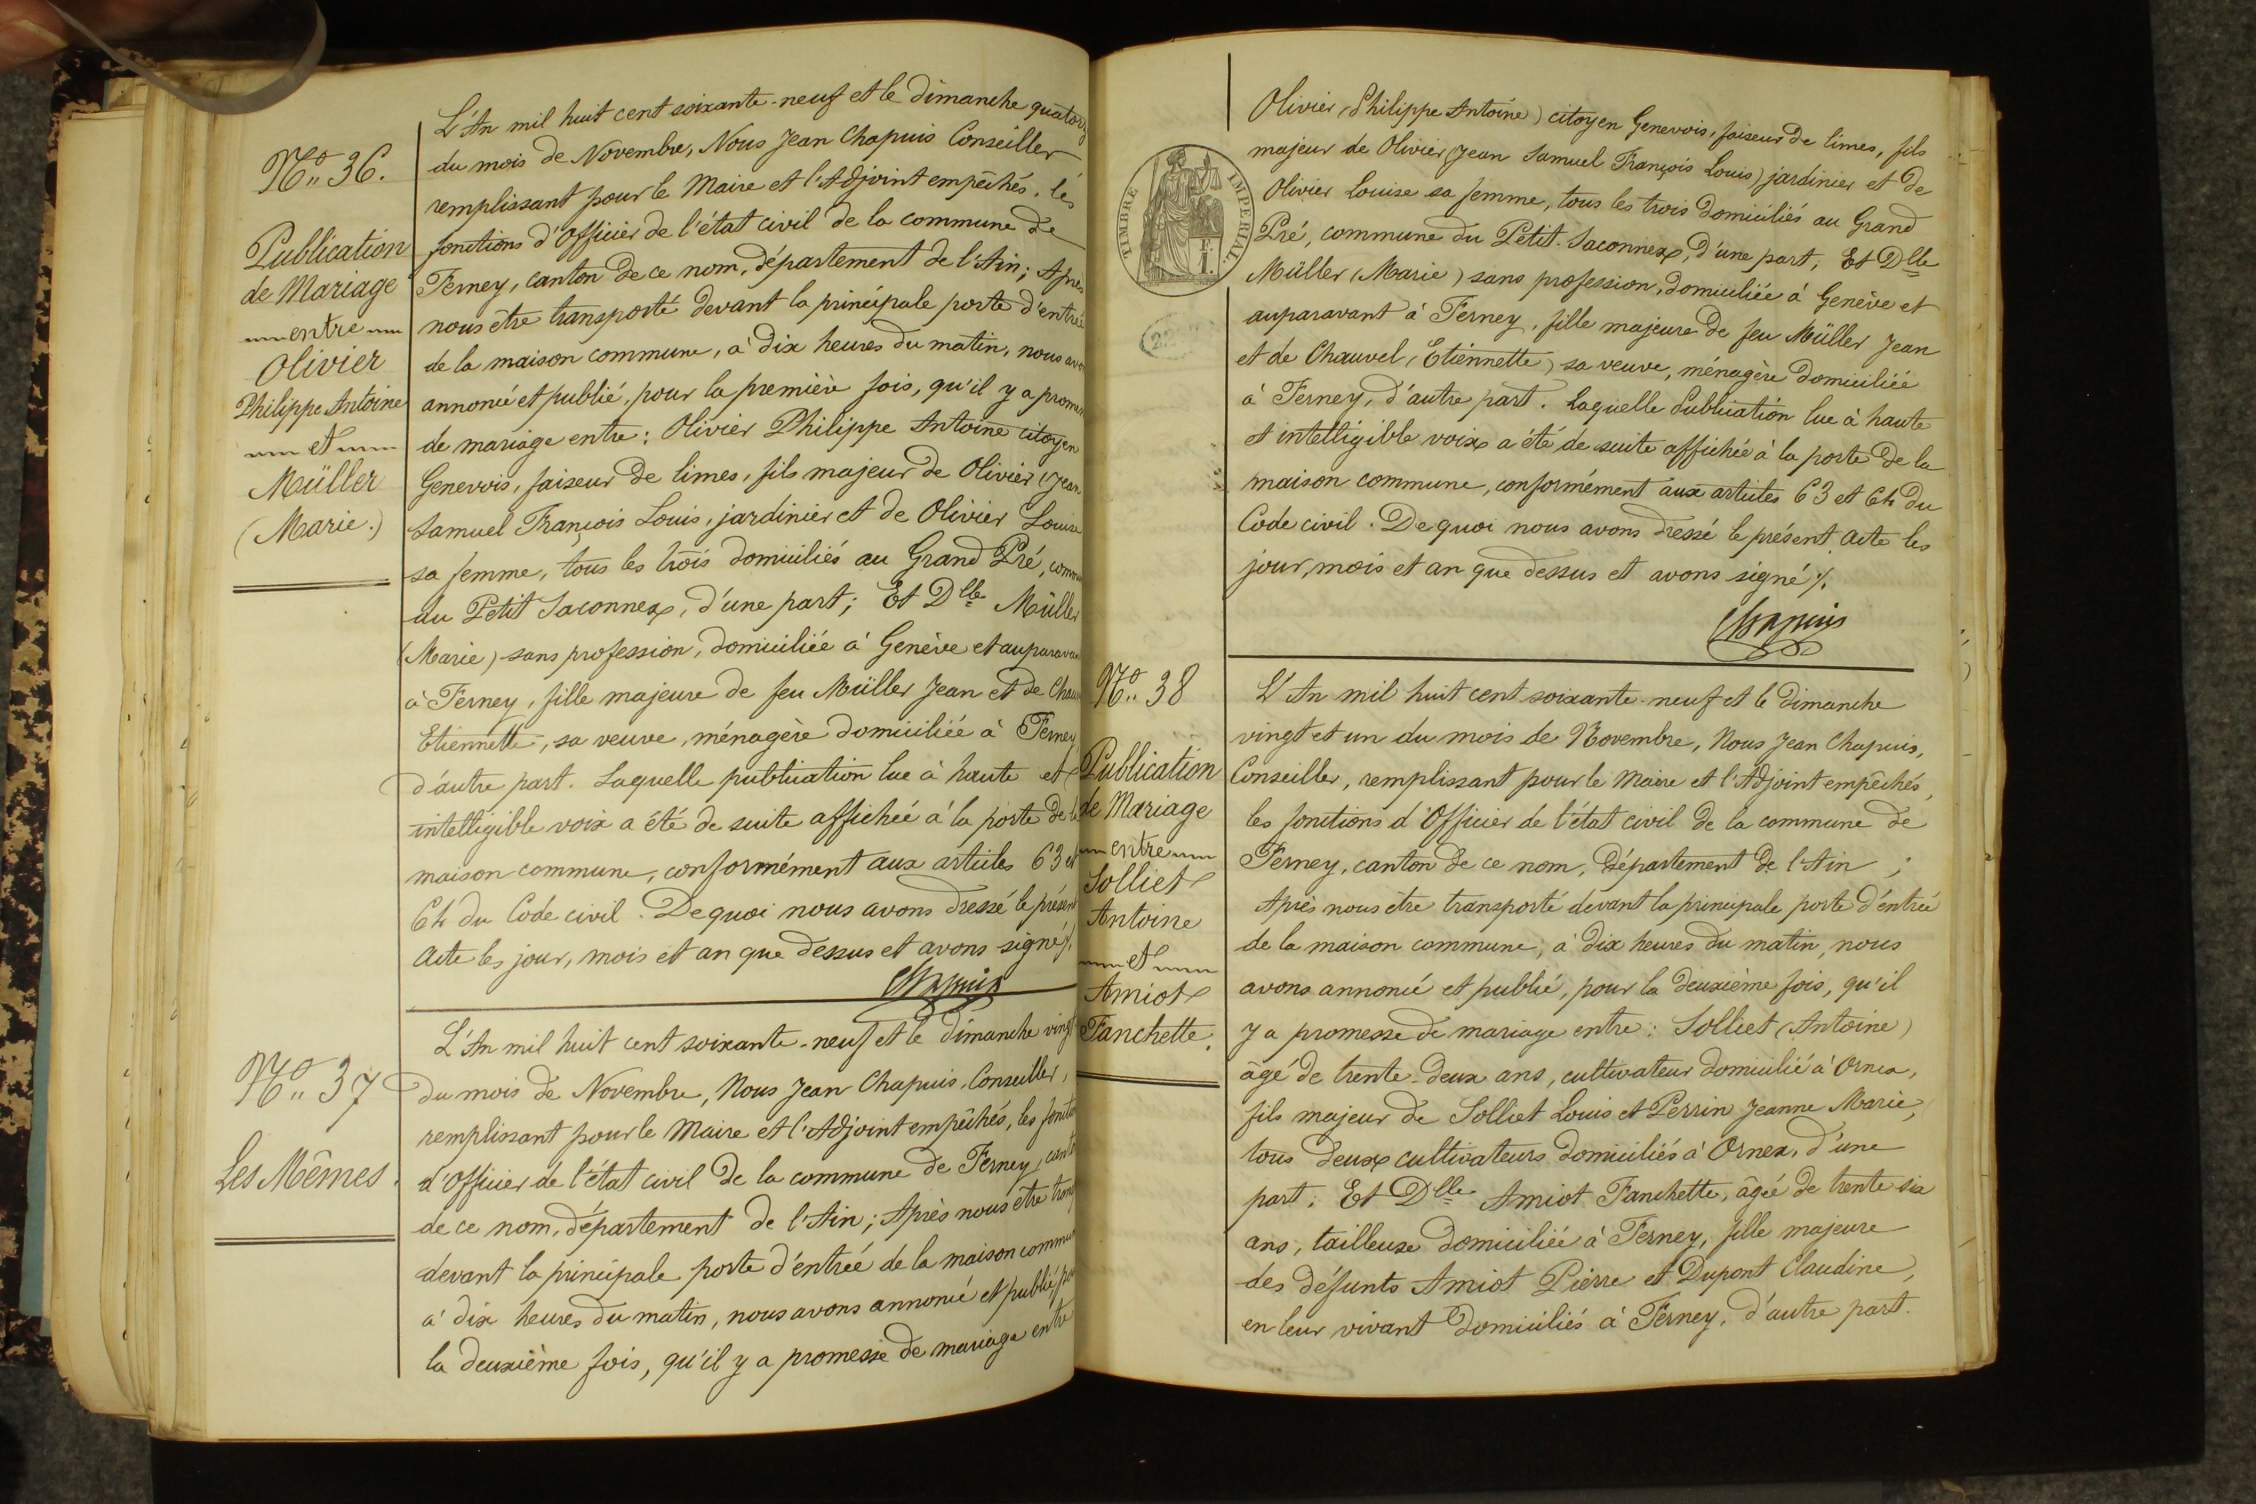 No. 36.
Publication
de Mariage
entre
Olivier
Philippe Antoine
et
Müller
(Marie.)
L'An mil huit cent soixante-neuf et le dimanche
du mois de Novembre, Nous Jean Chapuis Conseiller
remplissant pour le Maire et l'Adjoint empêchés, les
fonctions d'Officier de l'état civil de la commune de
Ferney, canton de ce nom, département de l'Ain; Après
nous être transporté devant la principale porte d'entrée
de la maison commune, à dix heures du matin, nous
annoncé et publié, pour la première fois, qu'il y a
de mariage entre: Olivier Philippe Antoine citoyen
Genevois, faiseur de limes, fils majeur de Olivier (Jean
Samuel François Louis, jardinier et de Olivier Louise
sa femme, tous les trois domiciliés au Grand Pré,
du Petit Saconnex, d'une part; Et Dlle Müller
(Marie) sans profession, domiciliée à Genève et
à Ferney, fille majeure de feu Müller Jean et de
Etiennette, sa veuve, ménagère domiciliée à Ferney
d'autre part. Laquelle publication lue à haute et
intelligible voix a été de suite affichée à la porte de la
maison commune, conformément aux articles 63 et
64 du Code civil. De quoi nous avons dressé le présent
Acte les jour, mois et an que dessus et avons signé ./.
Chapuis
No. 37
Les Mêmes.
L'An mil huit cent soixante-neuf et le dimanche
du mois de Novembre, Nous Jean Chapuis, Conseiller,
remplissant pour le Maire et l'Adjoint empêchés, les
d'Officier de l'état civil de la commune de Ferney,
de ce nom, département de l'Ain; Après nous être
devant la principale porte d'entrée de la maison
à dix heures du matin, nous avons annoncé et publié,
la deuxième fois, qu'il y a promesse de mariage entre
TIMBRE IMPERIAL
Olivier (Philippe Antoine) citoyen Genevois, faiseur de limes, fils
majeur de Olivier (Jean Samuel François Louis) jardinier et de
Olivier Louise sa femme, tous les trois domiciliés au Grand
Pré, commune du Petit-Saconnex, d'une part, Et Dlle
Müller (Marie) sans profession, domiciliée à Genève et
auparavant à Ferney, fille majeure de feu Müller Jean
et de Chauvel (Etiennette) sa veuve, ménagère domiciliée
à Ferney, d'autre part. Laquelle Publication lue à haute
et intelligible voix a été de suite affichée à la porte de la
maison commune, conformément aux articles 63 et 64 du
Code civil. De quoi nous avons dressé le présent Acte les
jour, mois et an que dessus et avons signé ./.
Chapuis
No. 38
Publication
de Mariage
entre
Solliet
Antoine
et
Amiot
Fanchette.
L'An mil huit cent soixante-neuf et le dimanche
vingt et un du mois de Novembre, Nous Jean Chapuis,
Conseiller, remplissant pour le Maire et l'Adjoint empêchés,
les fonctions d'Officier de l'état civil de la commune de
Ferney, canton de ce nom, département de l'Ain;
Après nous être transporté devant la principale porte d'entrée
de la maison commune, à dix heures du matin, nous
avons annoncé et publié, pour la deuxième fois, qu'il
y a promesse de mariage entre: Solliet (Antoine)
âgé de trente-deux ans, cultivateur domicilié à Ornex,
fils majeur de Solliet Louis et Perrin Jeanne Marie,
tous deux cultivateurs domiciliés à Ornex, d'une
part. Et Dlle Amiot Fanchette, âgée de trente six
ans, tailleuse domiciliée à Ferney, fille majeure
des défunts Amiot Pierre et Dupont Claudine,
en leur vivant domiciliés à Ferney, d'autre part.